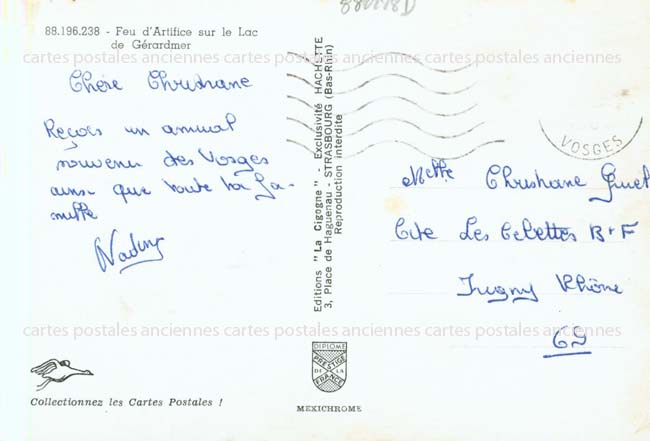 88.196.238 - Feu d'Artifice sur le Lac
de Gérardmer
Chère Christiane
Reçois un amical
souvenir des Vosges
ainsi que toute ta fa-
mille
Nadine
Editions "La Cigogne" - Exclusivité HACHETTE
3, Place de Haguenau - STRASBOURG (Bas-Rhin)
Reproduction interdite
VOSGES
Melle Christiane
Cite Les B+F
Irigny Rhône
69
cartes postales anciennes cartes postales anciennes cartes postales anciennes
cartes postales anciennes cartes postales anciennes cartes postales anciennes
DIPLOME
PRESTIGE
DE LA
FRANCE
Collectionnez les Cartes Postales !
MEXICHROME